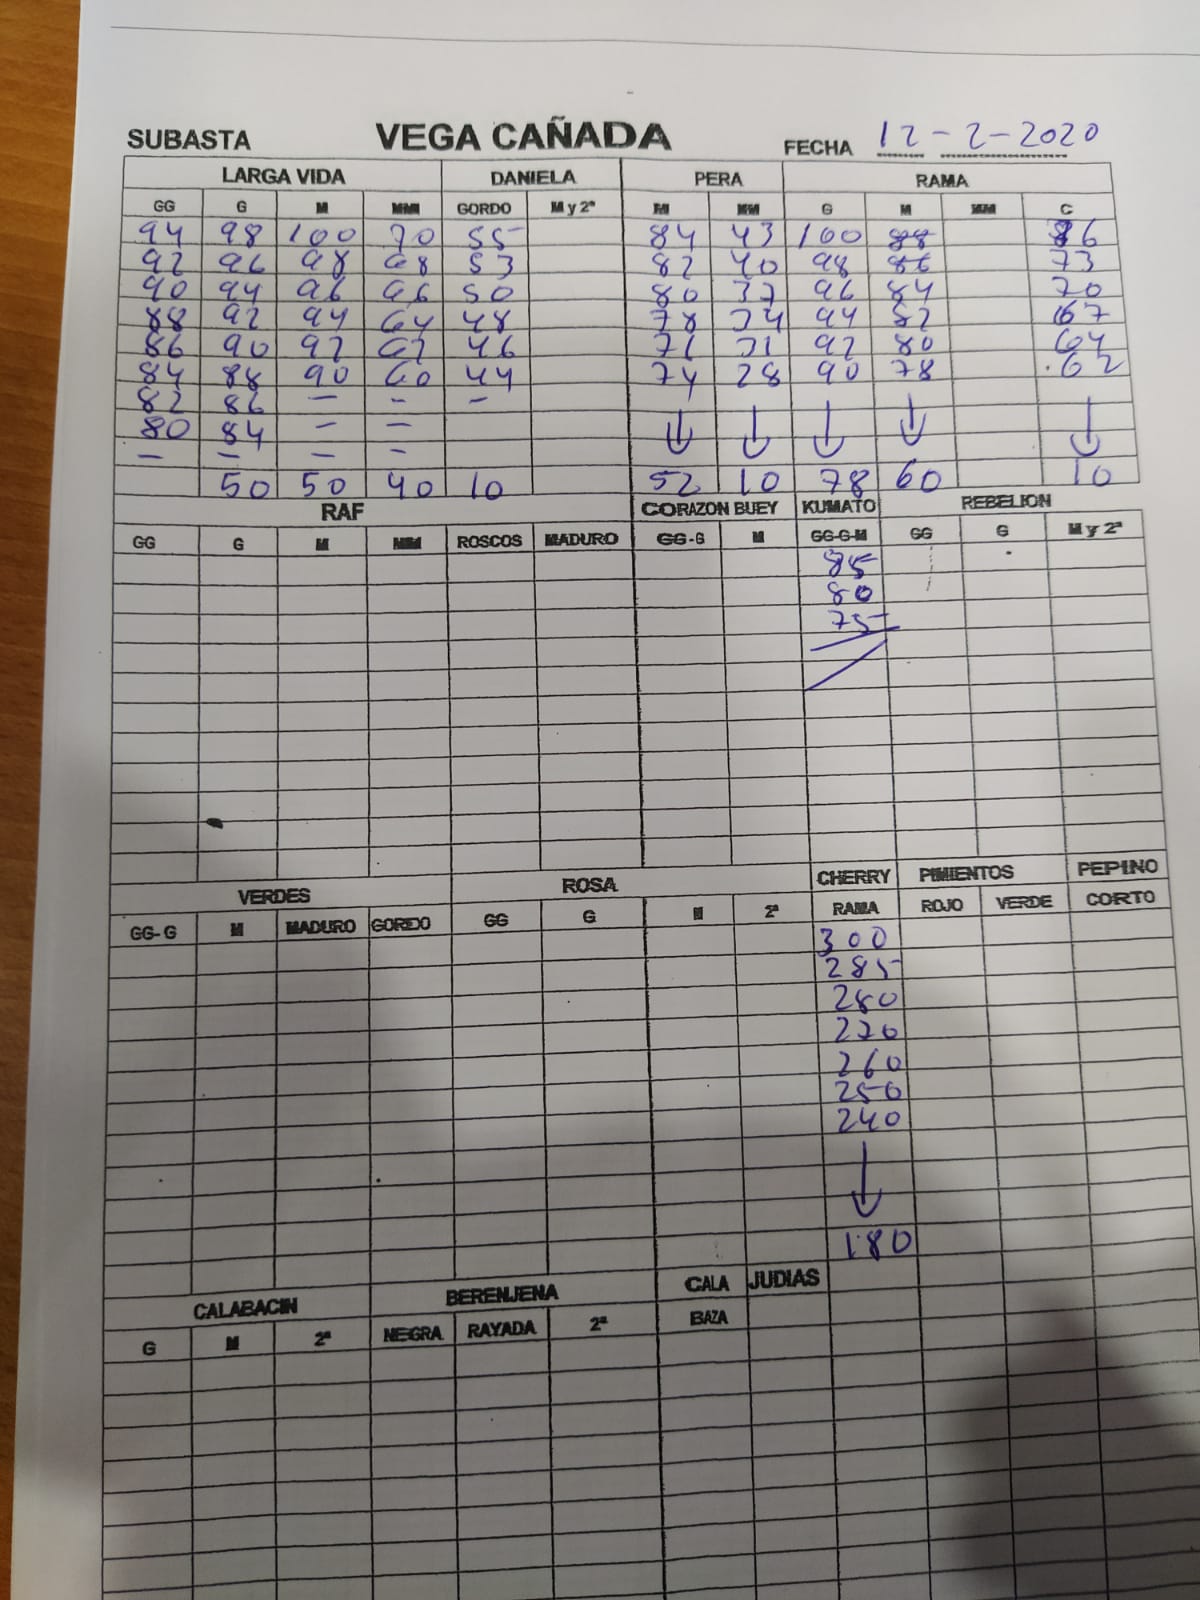 SUBASTA VEGA CAÑADA FECHA 12-2-2020
LARGA VIDA DANIELA PERA RAMA
GG G M MM GORDO M y 2ª M MM G M MM C
94 98 100 70 55 84 43 100 88 76
92 96 98 68 53 82 40 98 86 73
90 94 96 66 50 80 37 96 84 70
88 92 94 64 48 78 34 94 82 67
86 90 92 62 46 76 31 92 80 64
84 88 90 60 44 74 28 90 78 62
82 86 - - -
80 84 - - ↓ ↓ ↓ ↓ ↓
- - - -
50 50 40 10 52 10 78 60 10
RAF CORAZON BUEY KUMATO REBELION
GG G M MM ROSCOS MADURO GG-G M GG-G-M GG G M y 2ª
85
80
75
VERDES ROSA CHERRY PIMIENTOS PEPINO
GG-G M MADURO GORDO GG G M 2ª RAMA ROJO VERDE CORTO
300
285
280
270
260
250
240
↓
180
CALABACIN BERENJENA CALA JUDIAS
G M 2ª NEGRA RAYADA 2ª BAZA